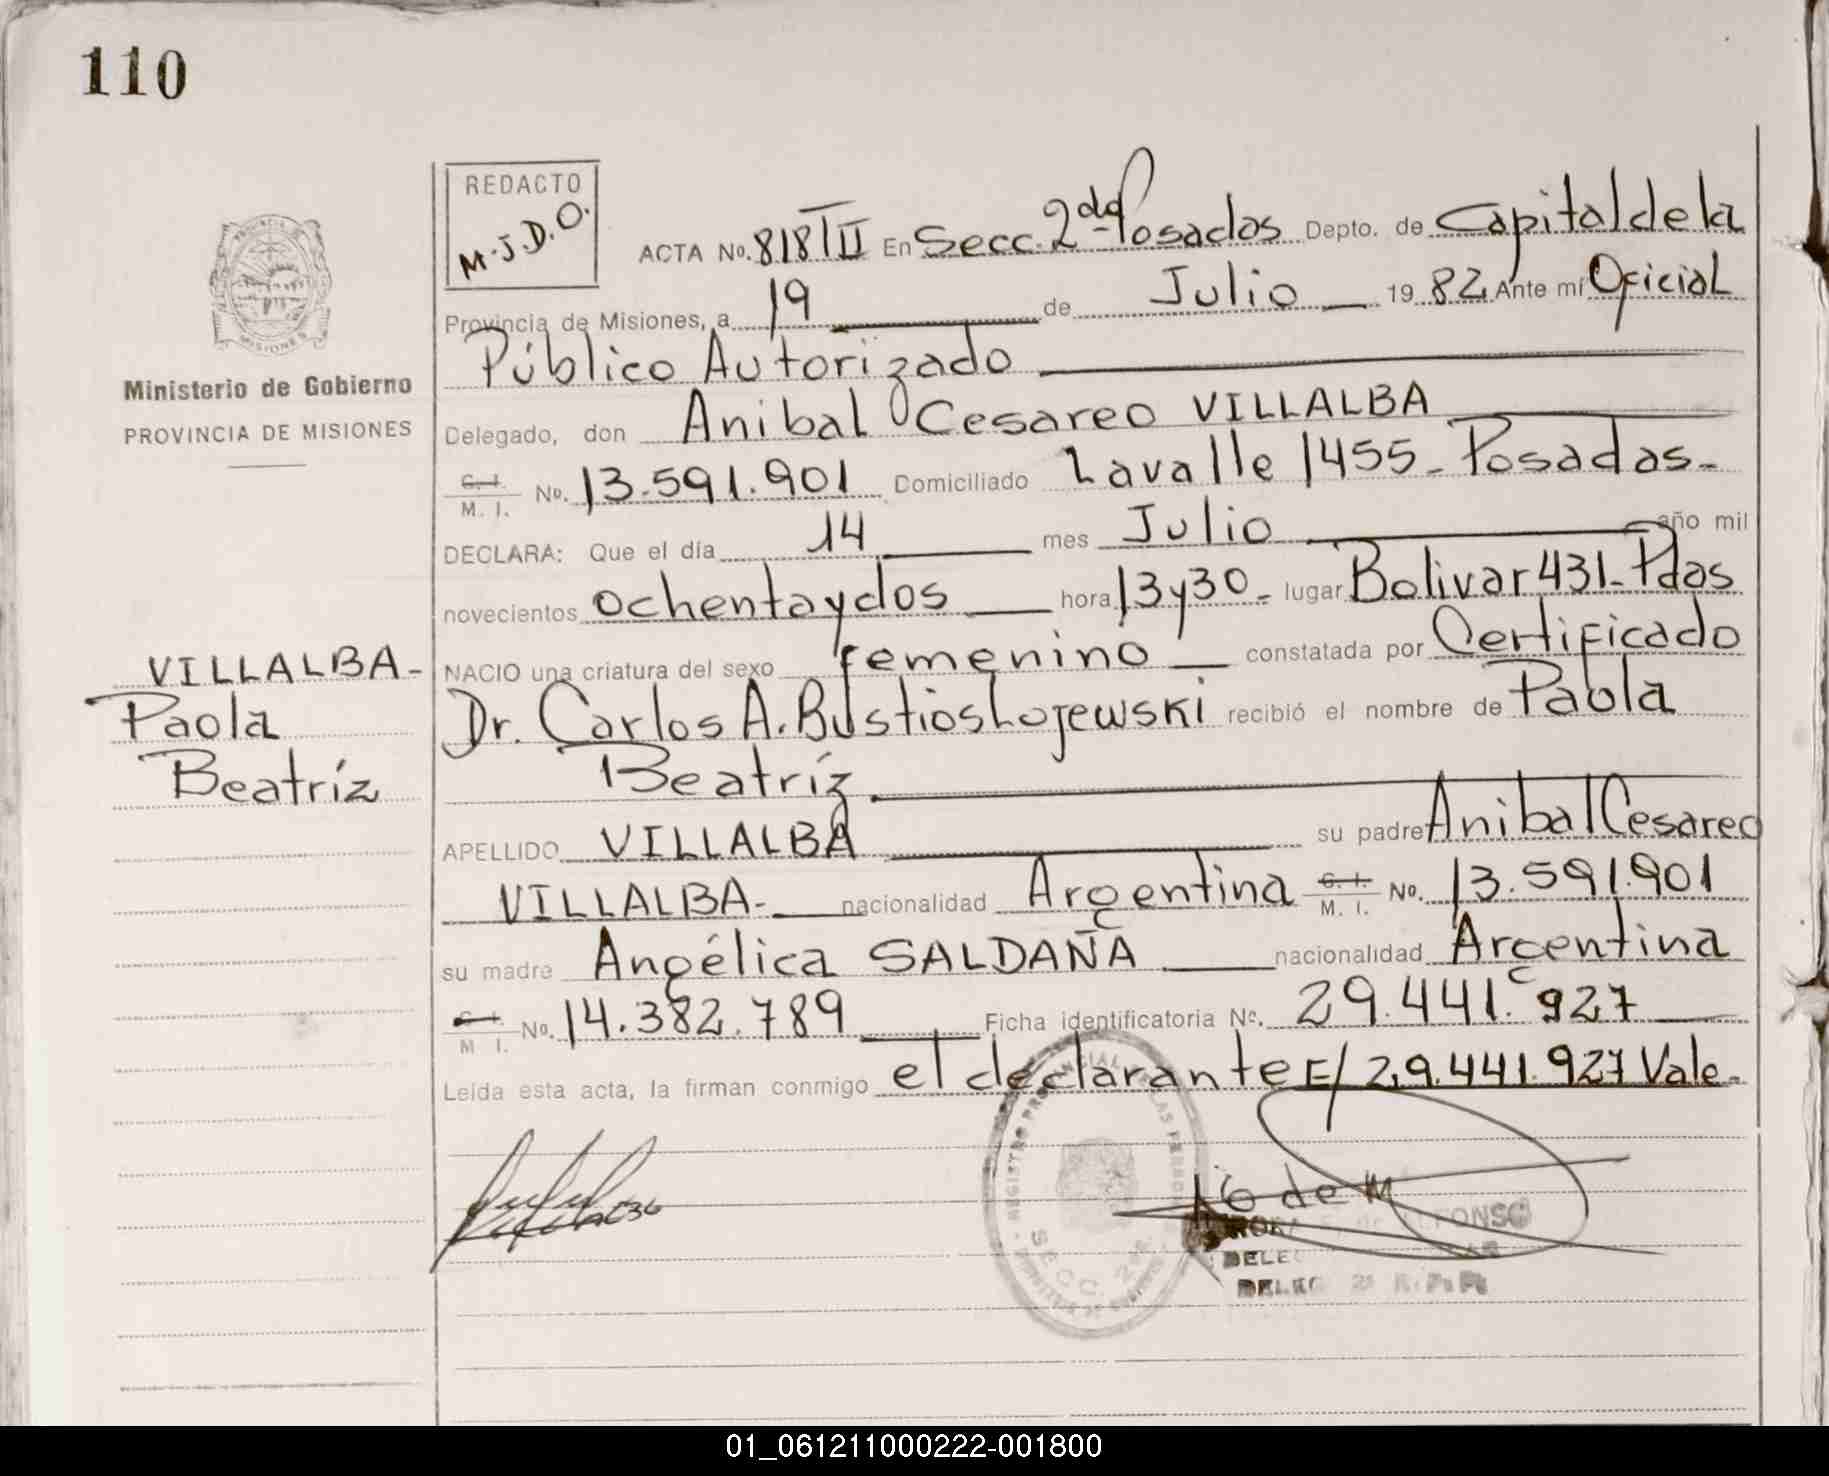 110
REDACTO
M.J.D.O.
ACTA No. 818 TII En Secc. 2da Posadas Depto. de Capital de la
Provincia de Misiones, a 19 de Julio 1982 Ante mí Oficial
Público Autorizado
Delegado, don Anibal Cesareo VILLALBA
C. I.
M. I. No. 13.591.901 Domiciliado Lavalle 1455 - Posadas -
DECLARA: Que el día 14 mes Julio año mil
novecientos ochentaydos hora 13y30 - lugar Bolivar 431 - Pdas
NACIO una criatura del sexo femenino constatada por Certificado
Dr. Carlos A. Bustioshojewski recibió el nombre de Paola
Beatríz
APELLIDO VILLALBA su padre Anibal Cesareo
VILLALBA - nacionalidad Argentina C. I.
M. I. No. 13.591.901
su madre Angélica SALDAÑA nacionalidad Argentina
C. I.
M. I. No. 14.382.789 Ficha identificatoria No. 29.441.927
Leída esta acta, la firman conmigo el declarante E/ 29.441.927 Vale -
Ministerio de Gobierno
PROVINCIA DE MISIONES
VILLALBA -
Paola
Beatríz
SECC. 2da
DELEG
01_061211000222-001800